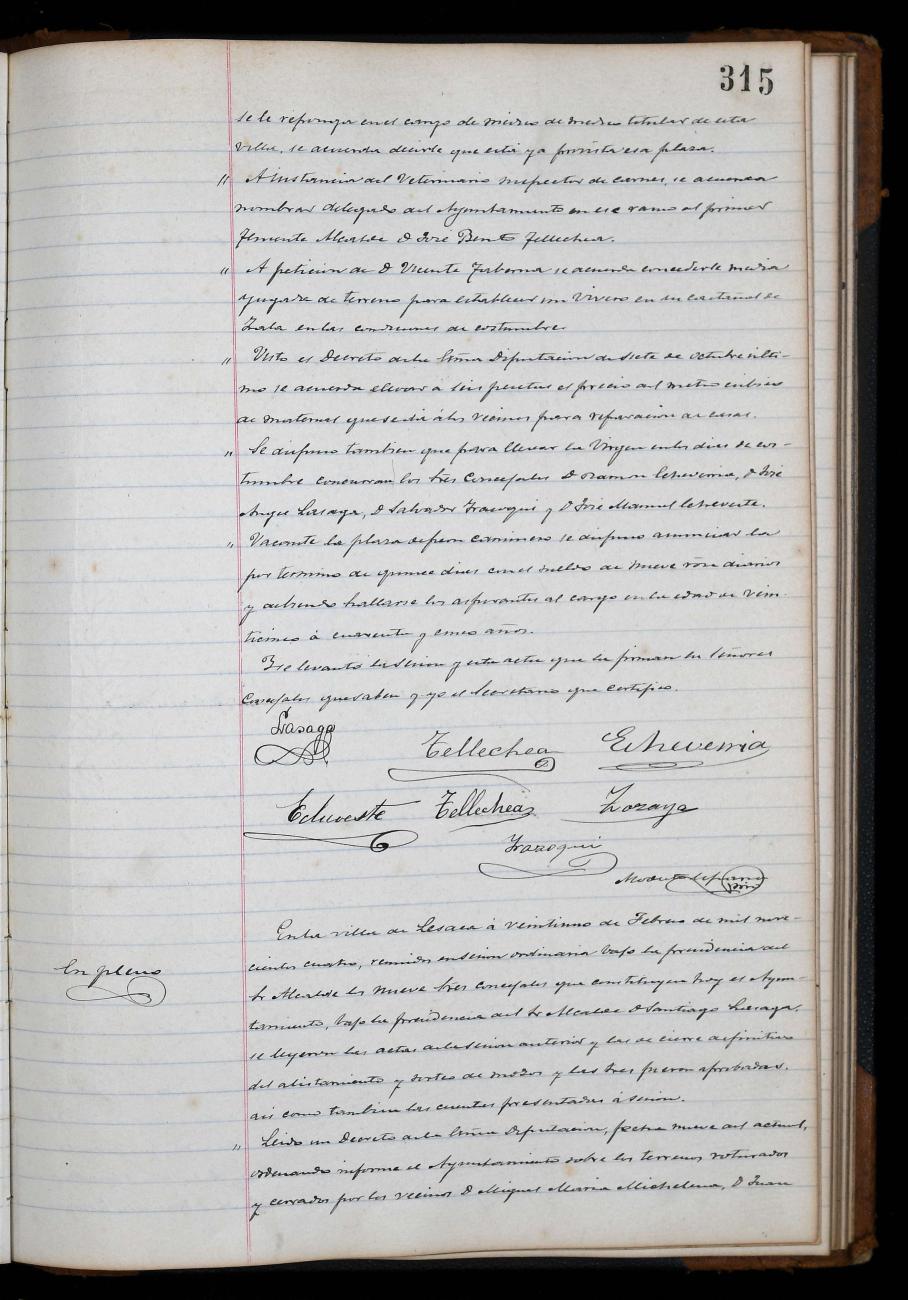 315
se le reponga en el cargo de médico de médico titular de esta
villa, se acuerda decirle que está ya provista esa plaza.
" A instancia del Veterinario inspector de carnes, se acuerda
nombrar delegado del Ayuntamiento en ese ramo al primer
Teniente Alcalde D José Benito Tellechea.
" A petición de D Vicente Taberna se acuerda concederle media
yugada de terreno para establecer un vivero en su castañal de
Zala en las condiciones de costumbre.
" Visto el Decreto de la Excma Diputacion de siete de octubre ulti-
mo se acuerda elevar a seis pesetas el precio del metro cubico
de material que se dá á los vecinos para reparacion de casas.
" Se dispuso tambien que para llevar la Virgen en los dias de cos-
tumbre concurran los tres Concejales D Ramon Echeverria, D José
Angel Lasaga, D Salvador Irazoqui y D José Manuel Echeveste.
" Vacante la plaza de peon caminero se dispuso anunciar la
por termino de quince dias con el sueldo de nueve rs diarios
y debiendo hallarse los aspirantes al cargo en la edad de vein-
ticinco á cuarenta y cinco años.
Y se levantó la sesion y esta acta que la firman los Señores
Concejales que saben y yo el Secretario que certifico.
Lasaga
Tellechea Echeverria
Echeveste Tellechea Zozaya
Irazoqui
En la villa de Lesaca á veintiuno de Febrero de mil nove-
En pleno
cientos cuatro, reunidos en sesion ordinaria bajo la presidencia del
Sr Alcalde los nueve tres concejales que constituyen hoy el Ayun-
tamiento, bajo la presidencia del Sr Alcalde D Santiago Lasaga,
se leyeron las actas de la sesion anterior y las de cierre definitivo
del alistamiento y sorteo de mozos y las tres fueron aprobadas,
asi como tambien las cuentas presentadas á sesion.
" Leido un Decreto de la Excma Diputacion, fecha nueve del actual,
ordenando informe el Ayuntamiento sobre los terrenos roturados
y cerrados por los vecinos D Miguel Maria Michelena, D Juan